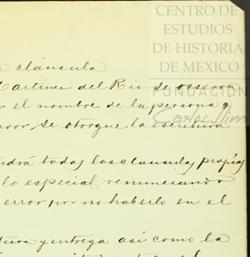 CENTRO DE
ESTUDIOS
DE HISTORIA
DE MEXICO
FUNDACIÓN
Carlos Slim
cláusula
Martinez del Rio se reserva
el nombre de la persona q
favor se otorgue la escritura
todas las cláusulas propias
lo especial, renunciando
error por no haberlo en el
y entrega así como la